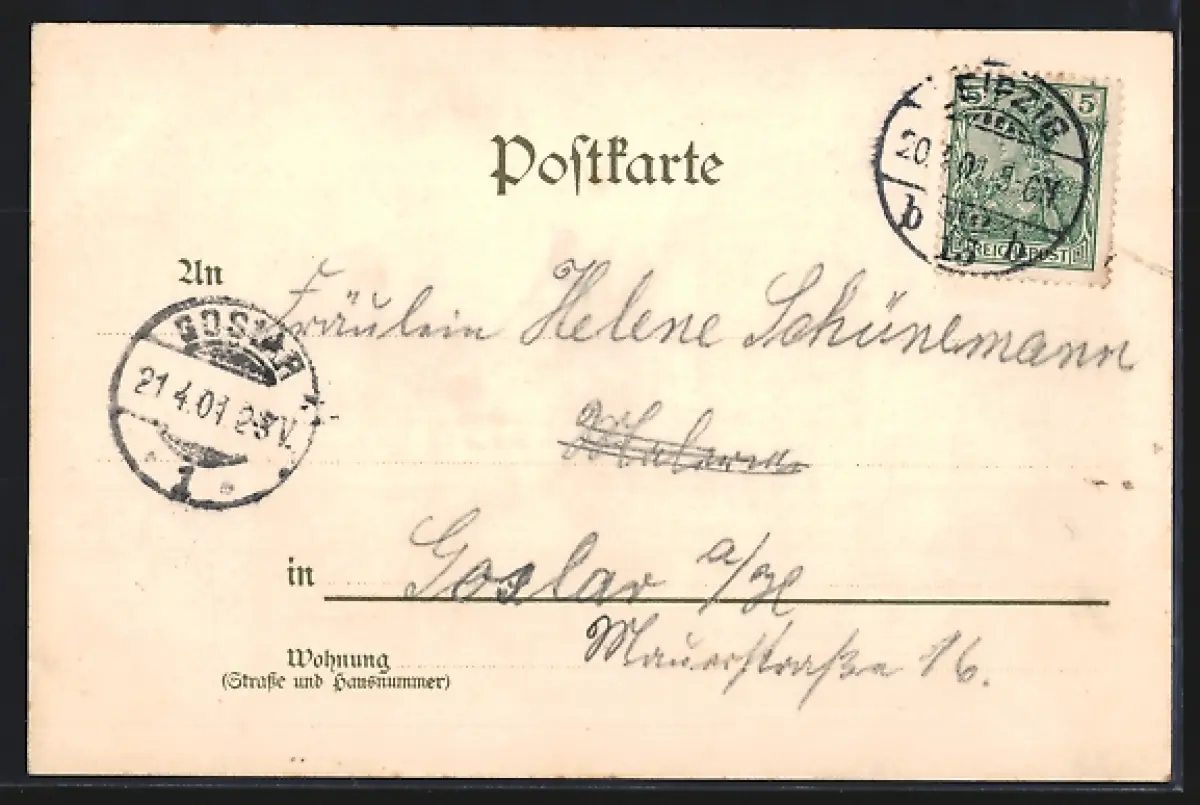 Postkarte
LEIPZIG
20. 4. 01. 
b 13 b
5 5
REICHSPOST
An Fräulein Helene Schünemann
GOSLAR
21 4.01. 2-3 V.
1
in Goslar a/H
Mauerstraße 16.
Wohnung
(Straße und Hausnummer)